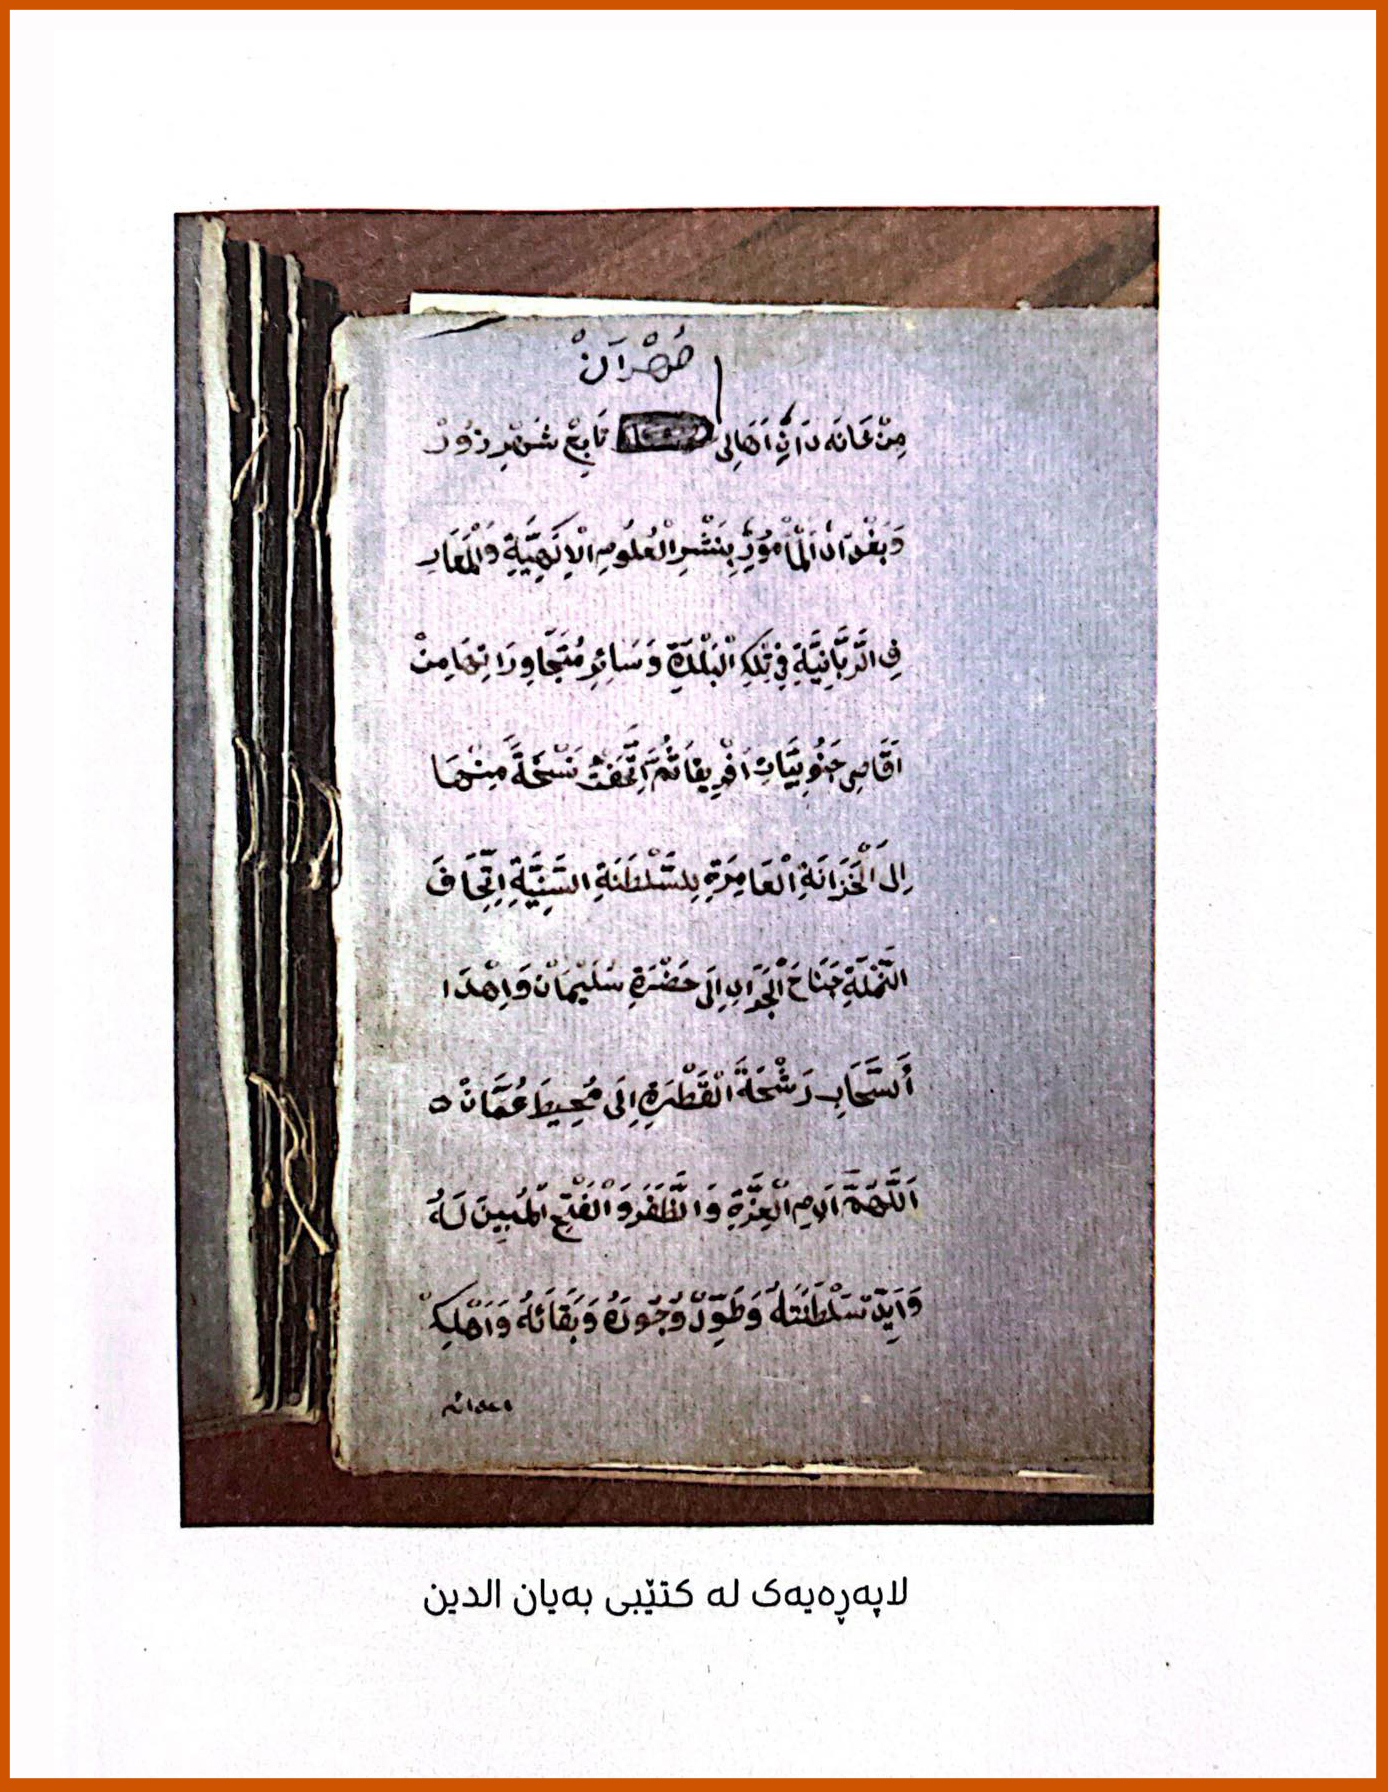 صُهْرَانْ
مِنْ خَانَه دَانِ اَهَالِى تَابِعْ شَهْرِ زُورْ
وَبَغْدَادْ اَلْمَأْمُورُ بِنَشْرِ الْعُلُومِ الْاِلَهِيَّةِ وَالْمَعَارِ
فِ الرَّبَّانِيَّةِ فِي تِلْكِ الْبَلْدَةِ وَسَائِرِ مُتَجَاوِرَاتِهَا مِنْ
اَقَاصِى جَنُوبِيَّاتِ اَفْرِيقَا ثُمَّ اِتَّحَفْتُ نَسْخَةً مِنْهَا
اِلَى الْخَزَانَةِ الْعَامِرَةِ لِلسَّلْطَنَةِ السَّنِيَّةِ اِتِّحَافَ
النَّمْلَةِ جَنَاحَ الْجَرَادِ اِلَى حَضْرَةِ سُلَيْمَانْ وَاِهْدَا
أَلسَّحَابِ رَشْحَةَ الْقَطْرَةِ اِلَى مُحِيطَ عُمَّانْ ه
اَللَّهُمَّ اَدِمِ الْعِزَّةِ وَالظَّفَرَ وَالْفَتْحَ الْمُبِينَ لَهُ
وَاَيِّدْ سَلْطَنَتَهُ وَطَوِّلْ وُجُودَهُ وَبَقَائَهُ وَاَهْلِكْ
اعدائه
لاپەڕەیەک لە کتێبی بەیان الدین